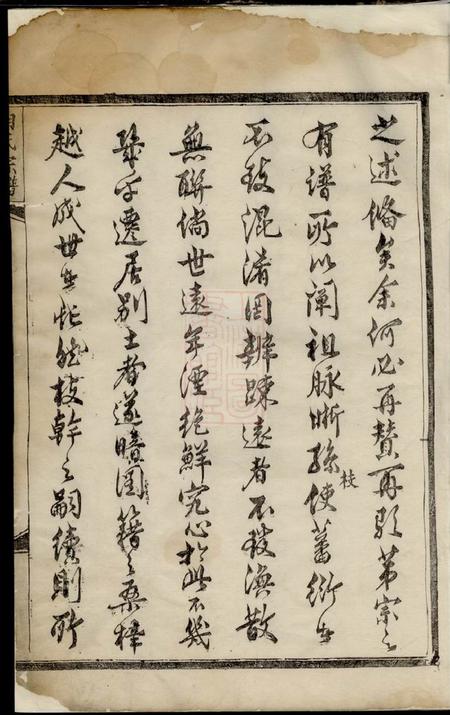 之述偹矣余何必再賛再引第宗之
有譜所以闡祖脉晰孫枝使蕃衍者
不致混淆罔辨踈遠者不致渙散
無聯倘世遠年湮絶鮮究心於此不幾
舉遷居別土者遂瞕圖籍之桑梓
越人成世者忙然枝幹之嗣續則所
氏宗譜